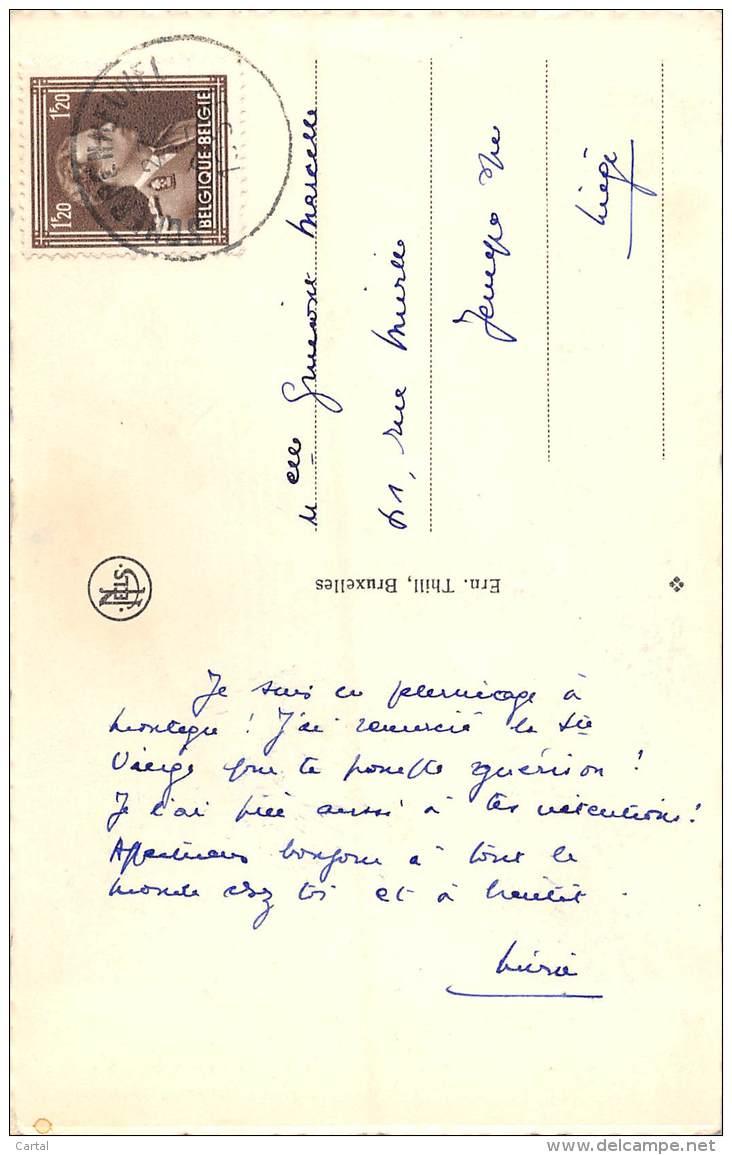 Je suis en pélerinage à
Montaigu ! J'ai remercié la Ste
Vierge pour ta prompte guérison !
Je l'ai priée aussi à tes intentions !
Affectueux bonjour à tout le
monde chez toi et à bientôt.
Melle Marcelle
61, rue
Jemeppe s/Me
Liège
Ern. Thill, Bruxelles
NELS
BELGIQUE-BELGIE
1F20
1F20
Cartal
delcampe.net